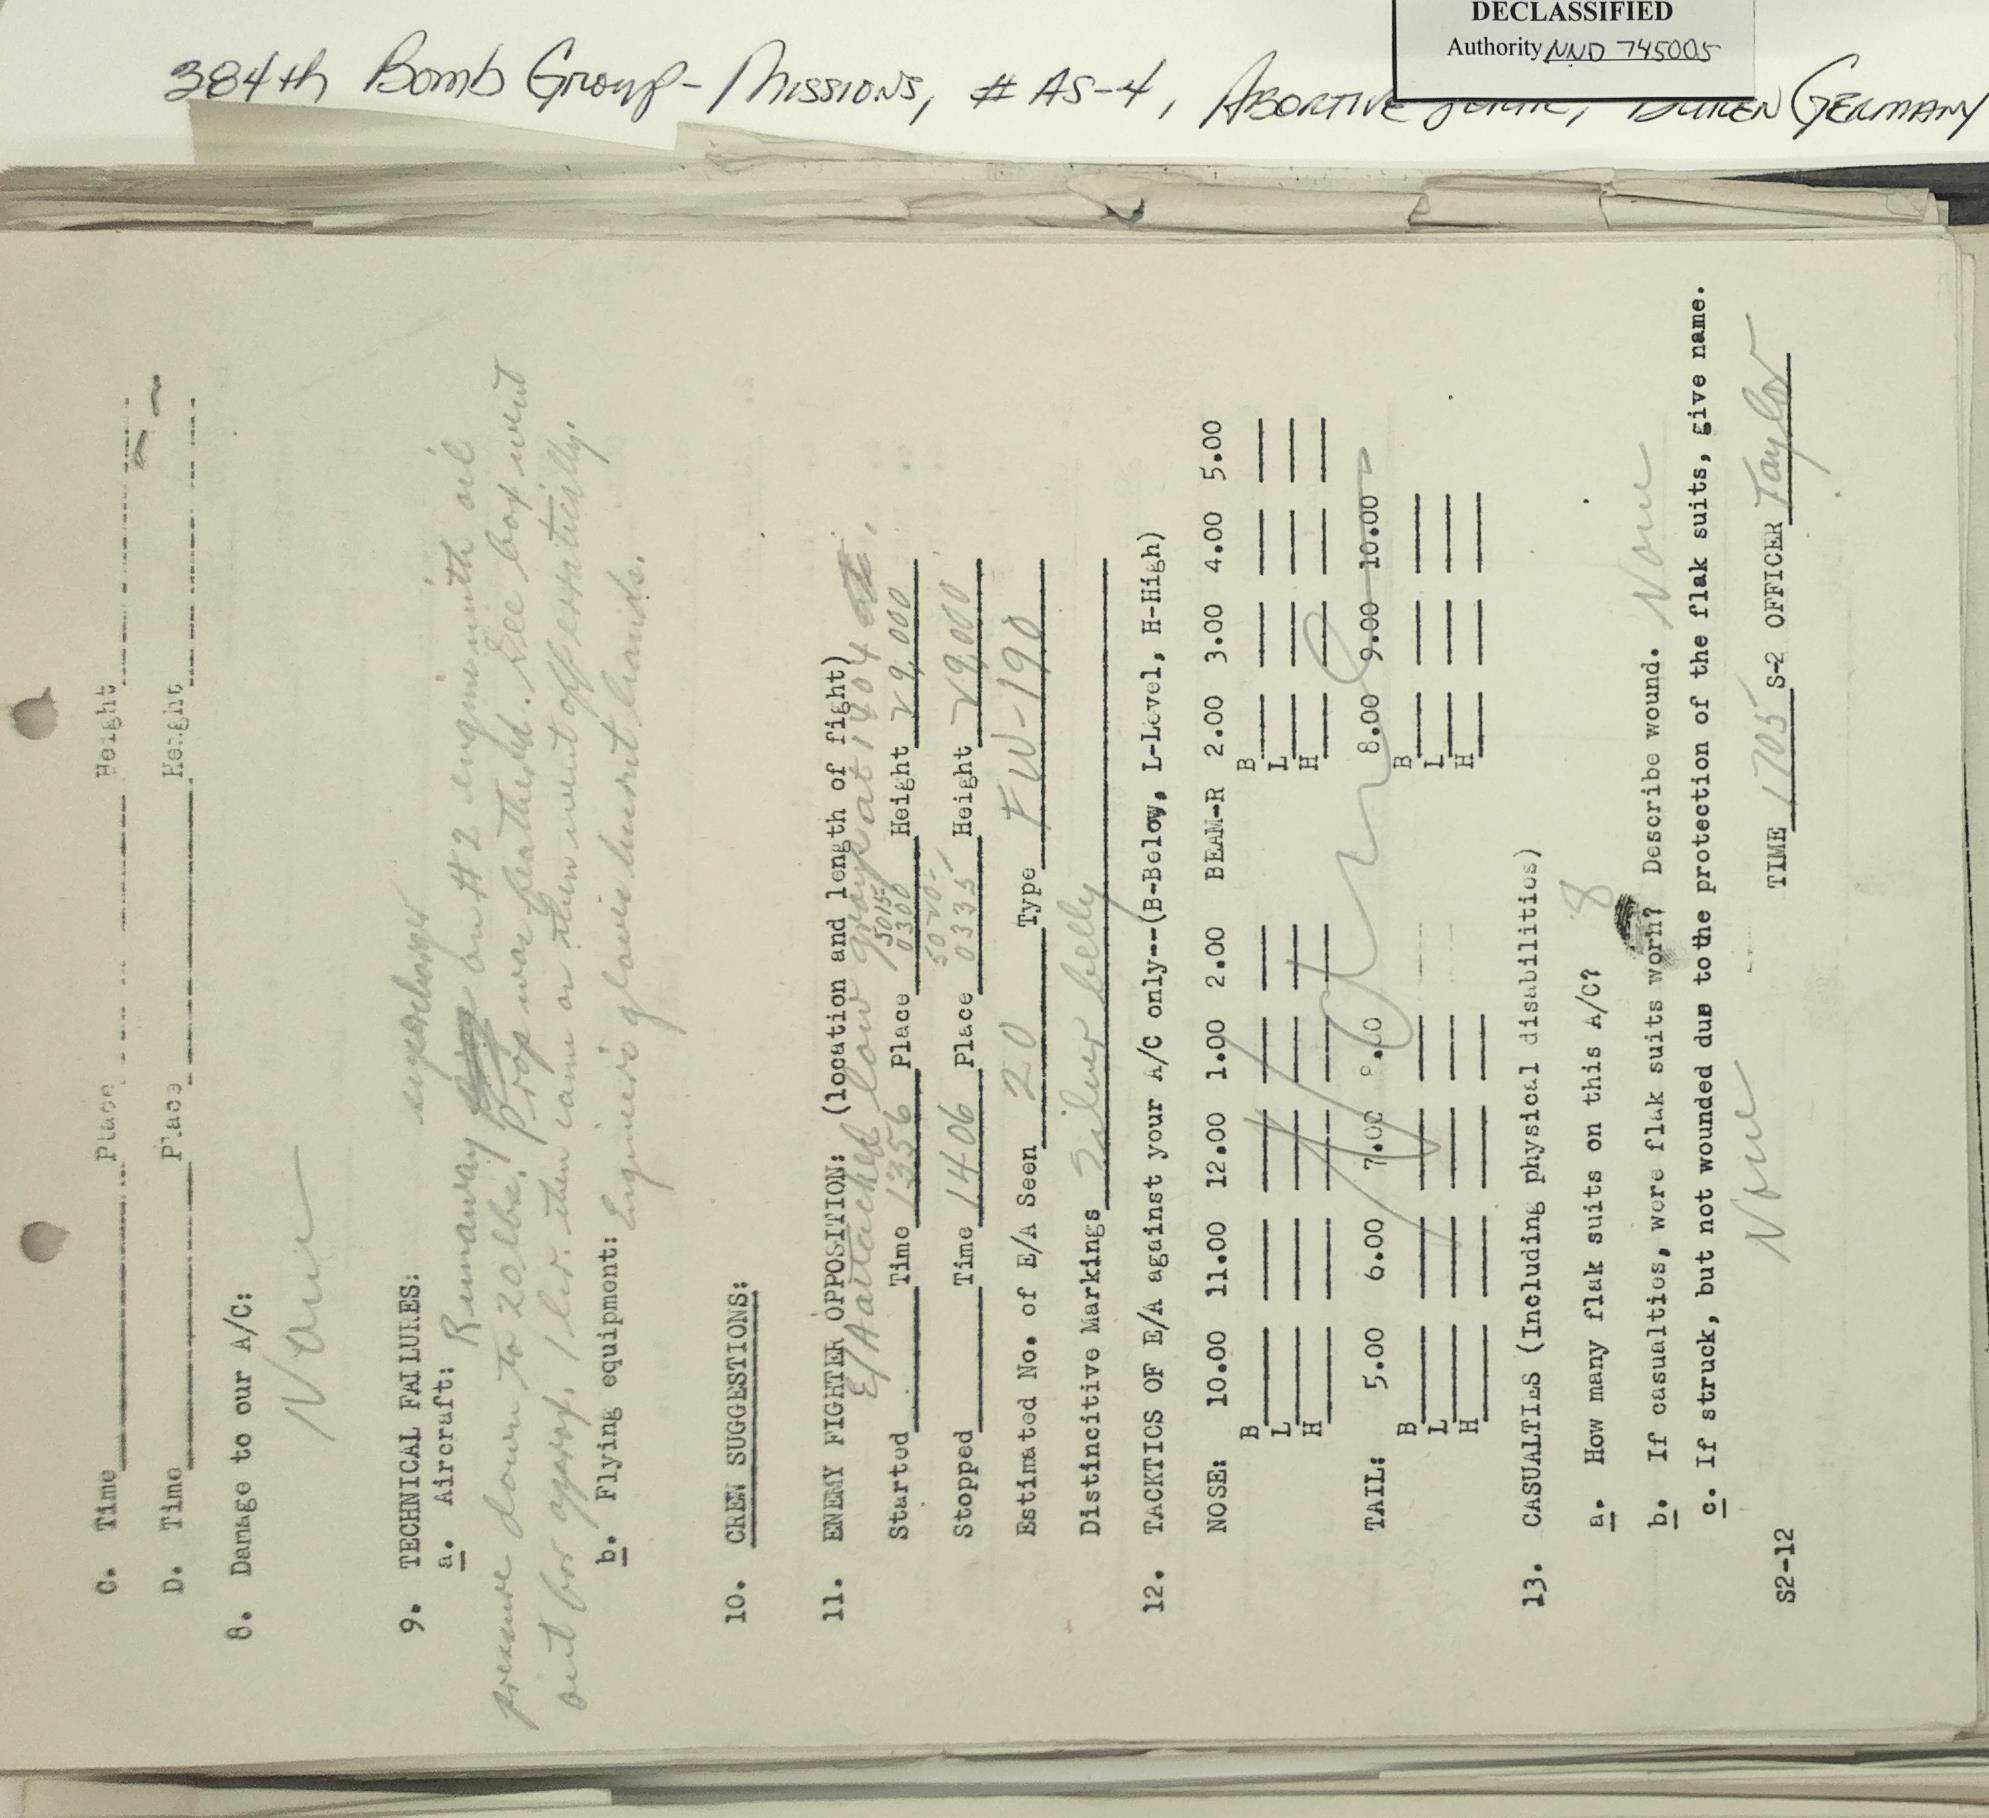 DECLASSIFIED
Authority NND 745005
384th Bomb Group - Missions, # AS-4, Abortive Duren Germany
C. Time Place Height
D. Time Place Height
8. Damage to our A/C:
None
9. TECHNICAL FAILURES:
supercharger
a. Aircraft: Runaway on #2 engine with oil
pressure down to 20 lbs. Prop was feathered. Gee box went
out for approx. 1 hr. then came on then went off erratically.
b. Flying equipment: Engineer's gloves burnt hands.
10. CREW SUGGESTIONS:
11. ENEMY FIGHTER OPPOSITION: (location and length of fight)
E/A attacked low group at 1404
Started Time 1356 Place 5015- 0300 Height 29,000
Stopped Time 1406 Place 5020- 0335 Height 29,000
Estimated No. of E/A Seen 20 Type FW-190
Distincitive Markings Silver belly
12. TACKTICS OF E/A against your A/C only--(B-Below, L-Level, H-High)
NOSE: 10.00 11.00 12.00 1.00 2.00 BEAM-R 2.00 3.00 4.00 5.00
B B
L L
H H
TAIL: 5.00 6.00 7.00 8.00 9.00 10.00
B B
L L
H H
13. CASUALTIES (Including physical disabilities)
a. How many flak suits on this A/C? 8
b. If casualties, were flak suits worn? Describe wound. None
c. If struck, but not wounded due to the protection of the flak suits, give name.
None
S2-12 TIME 1705 S-2 OFFICER Taylor